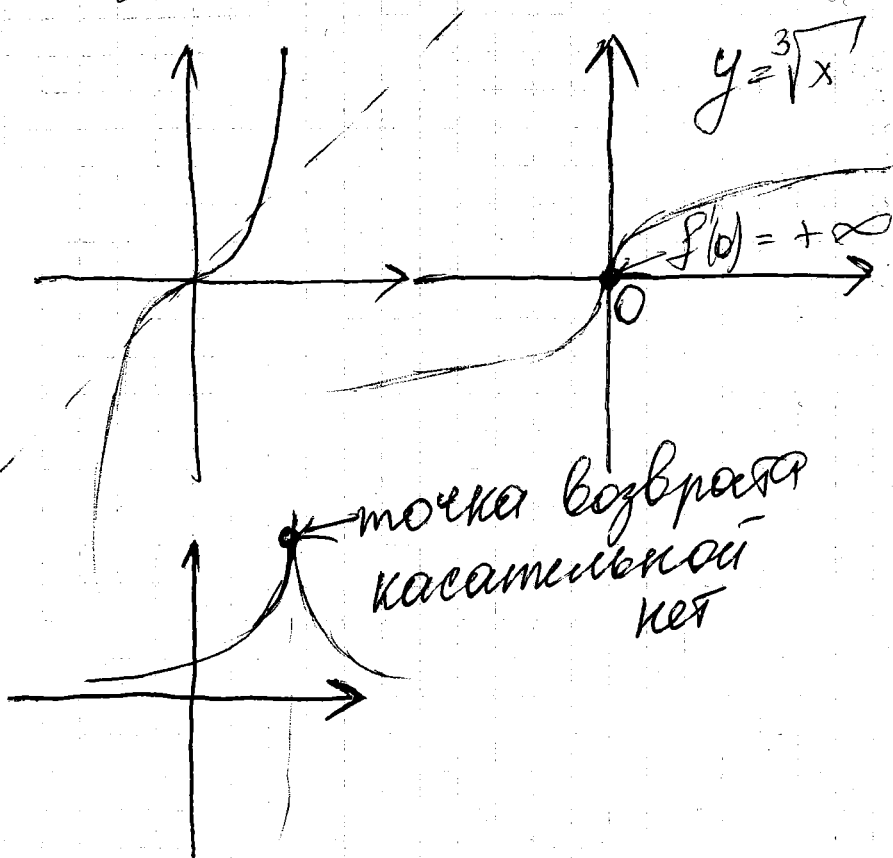 y = ∛x
f'(0) = +∞
0
точка возврата
касательной
нет